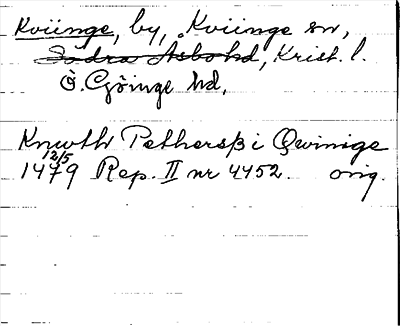 Kviinge, by, Kviinge sn,
Södra Åsbo hd, Krist. l.
Ö. Göinge hd,
Knwth Pethersß i Qwinige
12/5
1479 Rep. II nr 4452. orig.